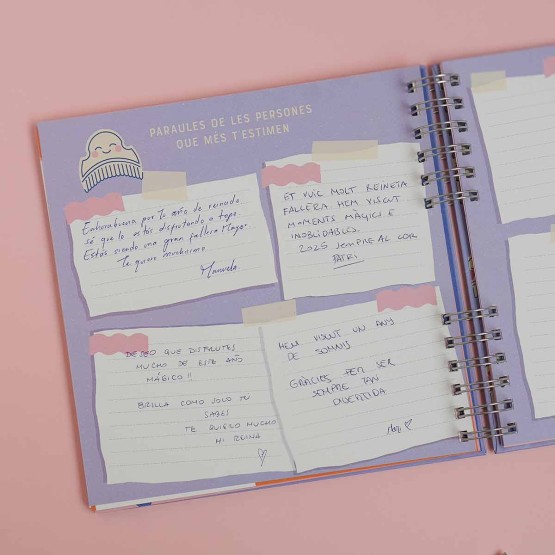 PARAULES DE LES PERSONES
QUE MÉS T'ESTIMEN
Enhorabuena por tu año de reinado
sé que lo estás disfrutando a tope.
Estás siendo una gran fallera Mayor.
Te quiero muchísimo
Manuela
ET VUIC MOLT REINETA
FALLERA. HEM VISCUT
MOMENTS MÀGICS E
INOBLIDABLES.
2025 SEMPRE AL COR
PATRI
DESEO QUE DISFRUTES
MUCHO DE ESTE AÑO
MÁGICO!!
BRILLA COMO SOLO TÚ
SABES
TE QUIERO MUCHO
MI REINA
HEM VISCUT UN ANY
DE SOMNIS
GRÀCIES PER SER
SEMPRE TAN
DIVERTIDA